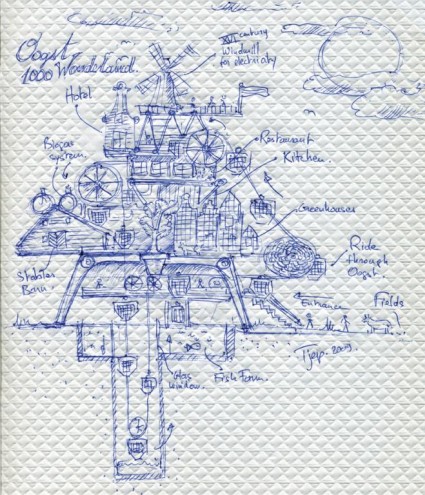 Oogst
1000 Wonderland.
XVI century
Windmill
for electricity
Hotel
Restaurant
Kitchen.
Biogas
system.
Greenhouses
Ride
through
Oogst.
Stables
Barn.
Entrance
Fields
Tjep. 2009
Glas
window.
Fish Farm.